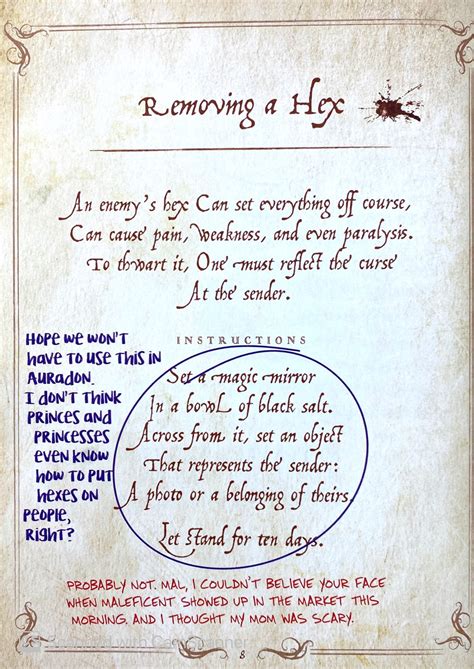 Removing a Hex
An enemy's hex Can set everything off course,
Can cause pain, Weakness, and even paralysis.
To thwart it, One must reflect the curse
At the sender.
INSTRUCTIONS
Set a magic mirror
In a bowl of black salt.
Across from it, set an object
That represents the sender:
A photo or a belonging of theirs.
Let stand for ten days.
HOPE WE WON'T
HAVE TO USE THIS IN
AURADON.
I DON'T THINK
PRINCES AND
PRINCESSES
EVEN KNOW
HOW TO PUT
HEXES ON
PEOPLE,
RIGHT?
PROBABLY NOT. MAL, I COULDN'T BELIEVE YOUR FACE
WHEN MALEFICENT SHOWED UP IN THE MARKET THIS
MORNING. AND I THOUGHT MY MOM WAS SCARY.
with
8